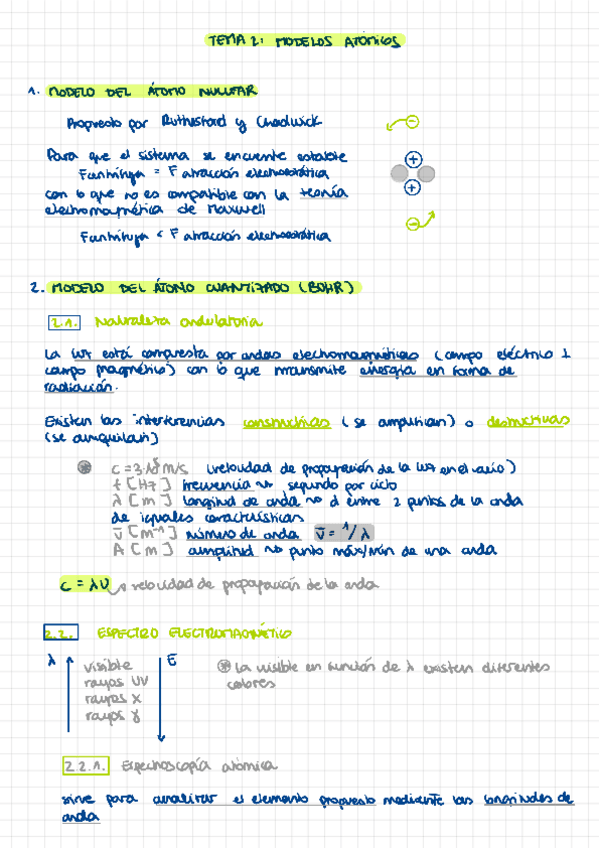 TEMA 2: MODELOS ATÓMICOS
1. MODELO DEL ÁTOMO NUCLEAR
Propuesto por Rutherford y Chadwick
Para que el sistema se encuente estable
F centrífuga = F atracción electrostática
con lo que no es compatible con la teoría
electromagnética de Maxwell
F centrífuga < F atracción electrostática
2. MODELO DEL ÁTOMO CUANTIZADO (BOHR)
2.1. Naturaleza ondulatoria
La luz está compuesta por ondas electromagnéticas (campo eléctrico ⊥
campo magnético) con lo que transmite energía en forma de
radiación.
Existen las interferencias constructivas (se amplifican) o destructivas
(se aniquilan)
c = 3·10⁸ m/s (velocidad de propagación de la luz en el vacío)
f [Hz] frecuencia segundo por ciclo
λ [m] longitud de onda d entre 2 puntos de la onda
de iguales características
ν̅ [m⁻¹] número de onda ν̅ = 1/λ
A [m] amplitud punto máx/mín de una onda
c = λν velocidad de propagación de la onda
2.2. ESPECTRO ELECTROMAGNÉTICO
λ visible E
rayos UV
rayos X
rayos γ
* La visible en función de λ existen diferentes
colores
2.2.1. Espectroscopía atómica
sirve para analizar el elemento propuesto mediante las longitudes de
onda